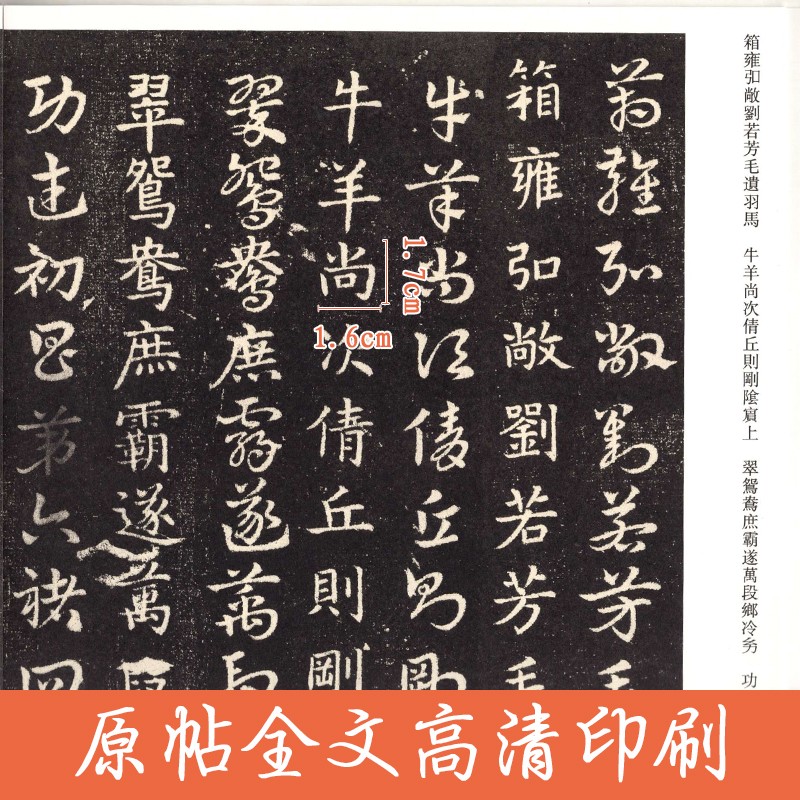 箱雍弘敞劉若芳毛遺羽馬 牛羊尚次倩丘則剛陰上 翠鴛鴦庶霸遂萬段鄉冷 功
箱雍弘敞劉若芳毛
箱雍弘敞劉若芳毛
牛羊尚次倩丘則剛
牛羊尚次倩丘則剛
翠鴛鴦庶霸遂萬段
翠鴛鴦庶霸遂萬段
功初昆弟六褚
1.7cm
1.6cm
原帖全文高清印刷